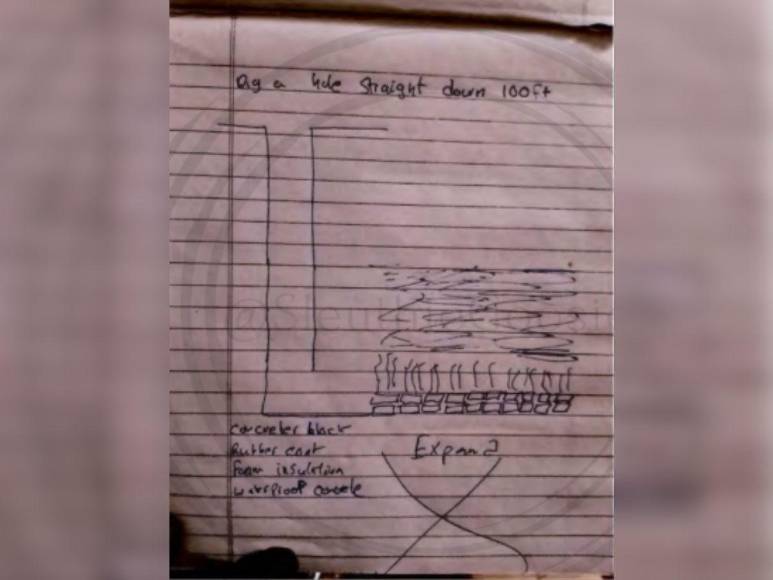 Dig a hole straight down 100ft
concreter block
Rubber coat
foam insulation
waterproof
Expand